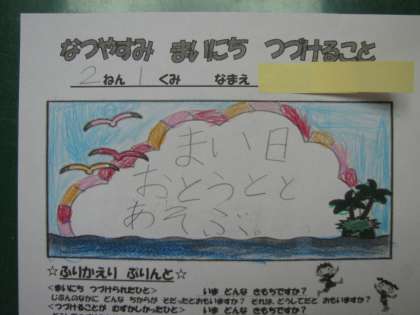 なつやすみ まいにち つづけること
2ねん 1くみ なまえ
まい日
おとうとと
あそぶ。
☆ふりかえり ぷりんと☆
<まいにち つづけられたひと> いま どんな きもちですか?
じぶんのなかに どんな ちからが そだったとおもいますか? それは、どうしてだと おもいますか?
<つづけることが むずかしかったひと> いま どんな きもちですか?